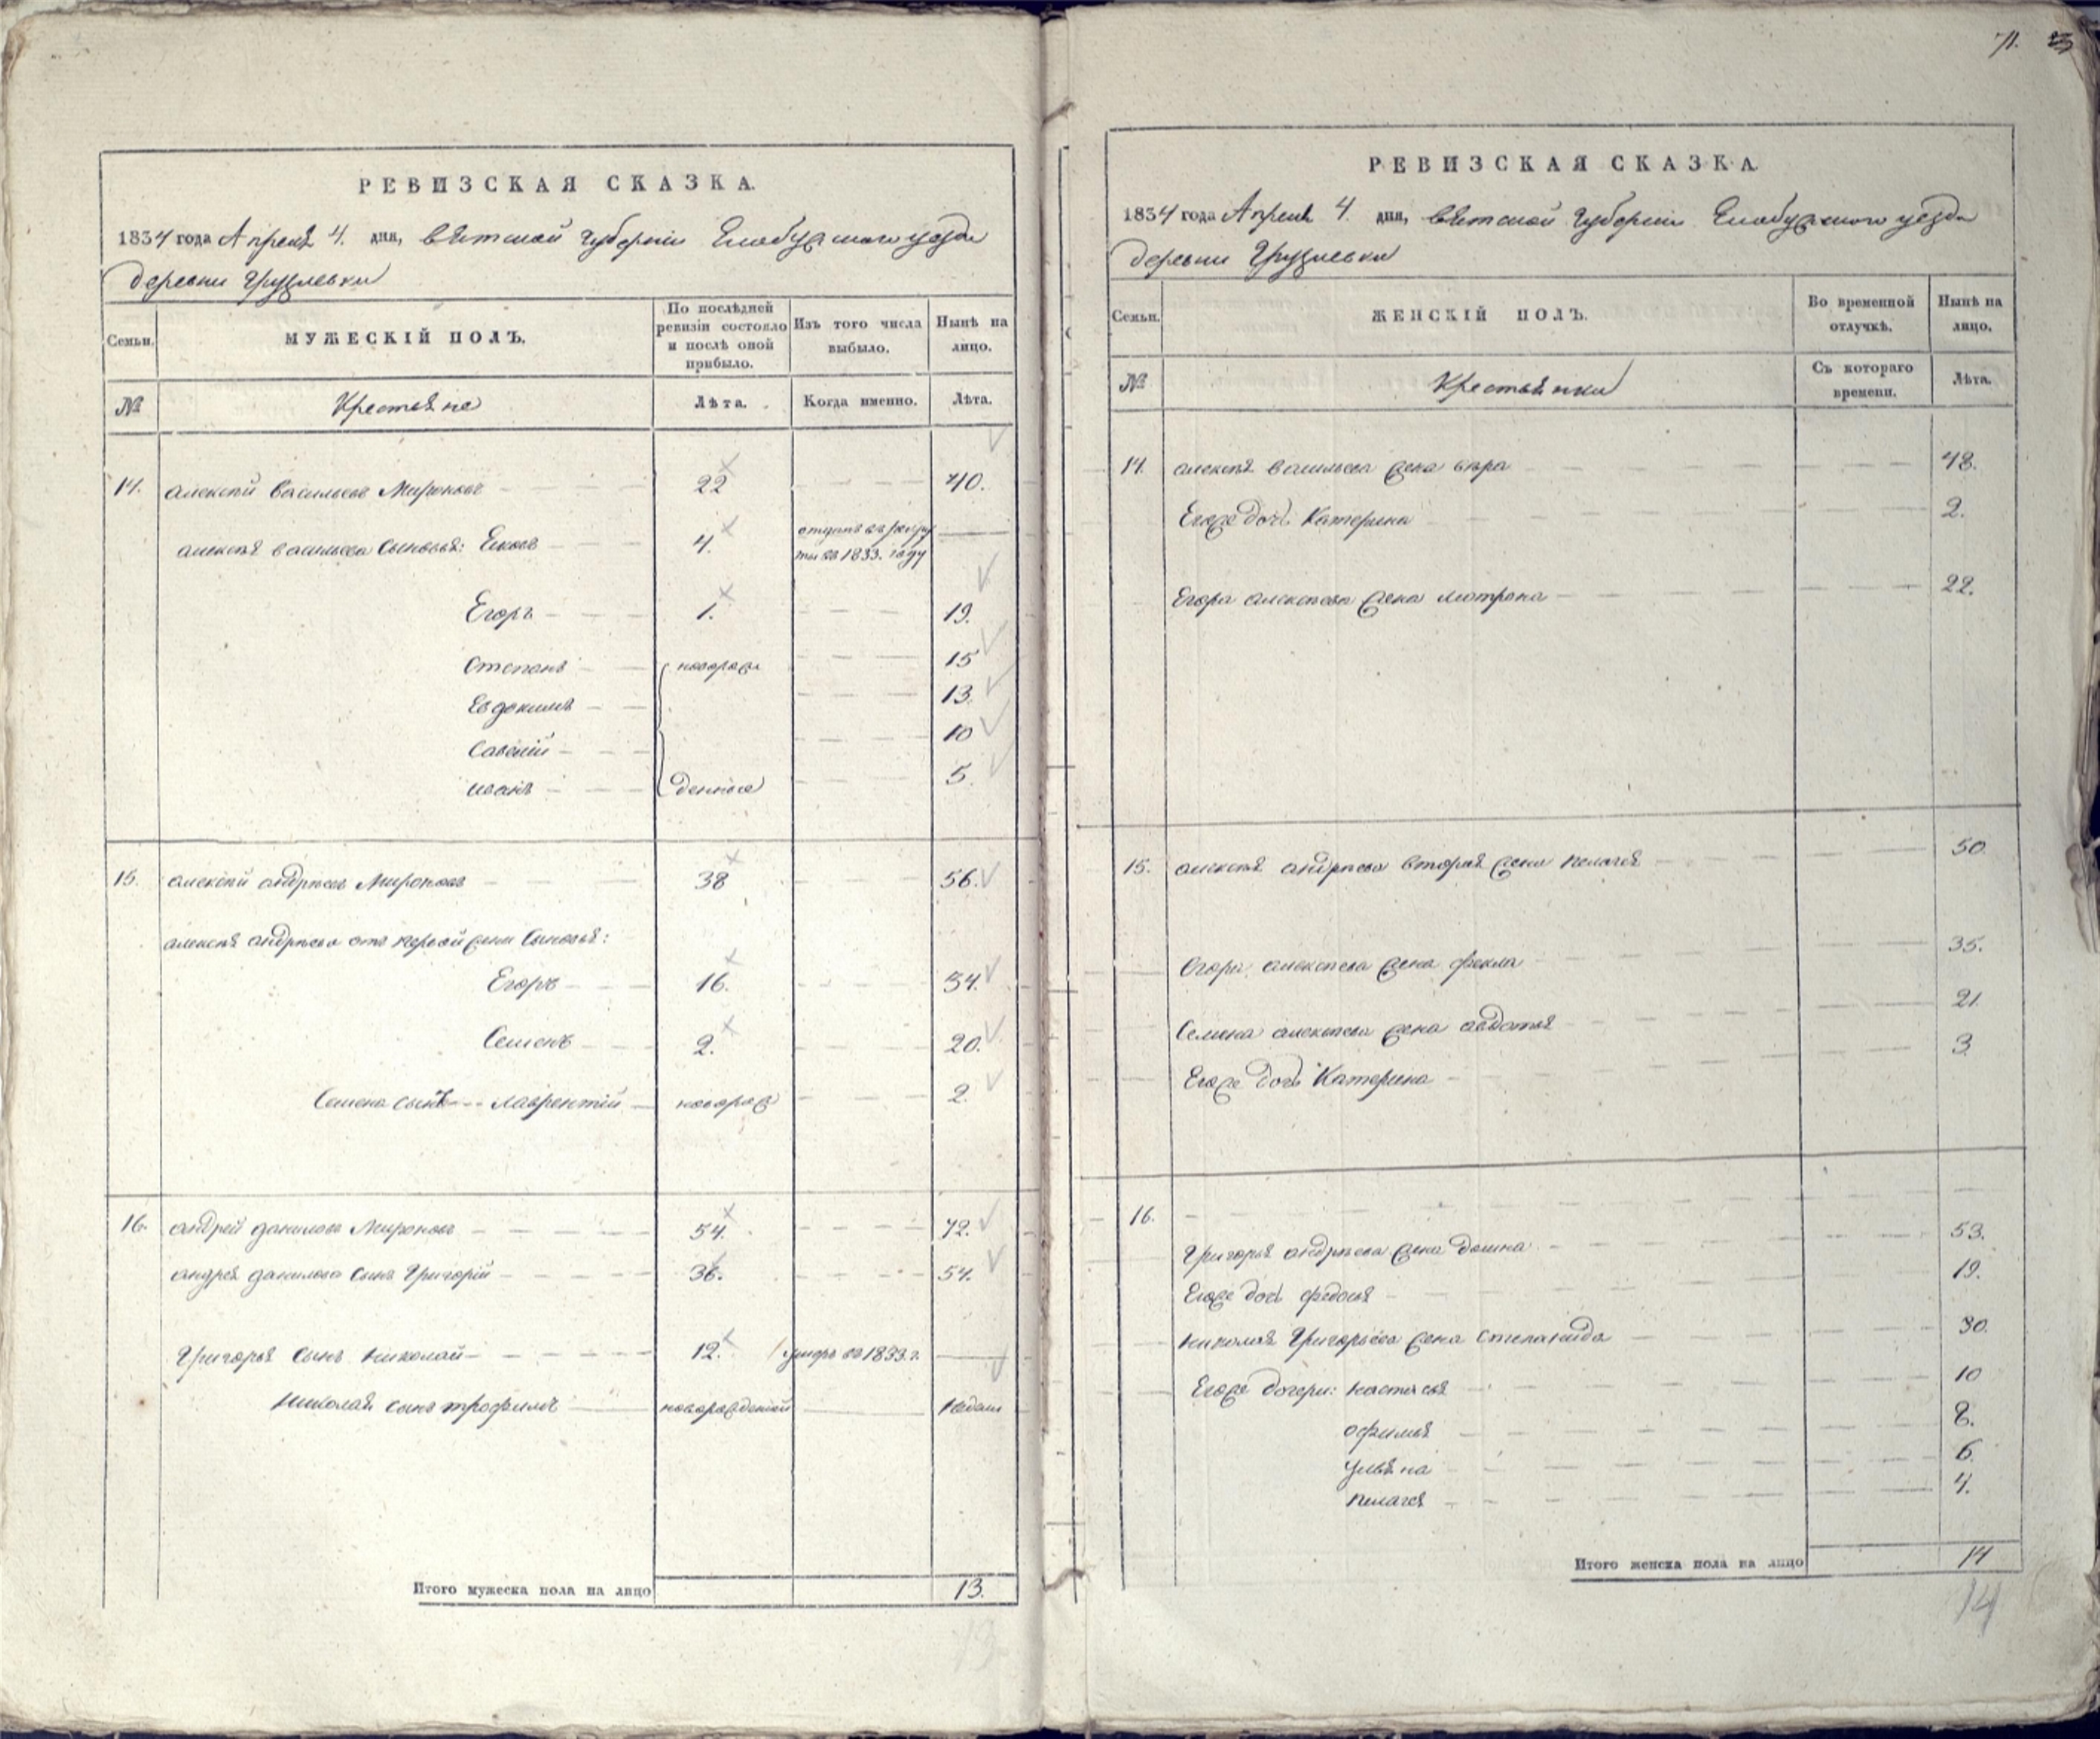 71.
РЕВИЗСКАЯ СКАЗКА.
1834 года Апреля 4. дня, Вятской губернiи Елабужского уезда
деревни
Семьи. МУЖЕСКIЙ ПОЛЪ. По послѣдней ревизiи состояло и послѣ оной прибыло. Изъ того числа выбыло. Нынѣ на лицо.
№ Крестьяне Лѣта. Когда именно. Лѣта.
14. алексѣй васильевъ Мироновъ 22 40.
алексѣя васильева сыновья: Яковъ 4. отданъ въ рекру
ты въ 1833. году
Егоръ 1. 19.
Степанъ новорож 15
Евдокимъ 13.
Савелiй 10
иванъ денные 5.
15. алексѣй андрѣевъ Мироновъ 38 56.
алексѣя андрѣева отъ первой жены сыновья:
Егоръ 16. 34.
Семенъ 2. 20.
Семена сынъ лаврентiй новорож 2.
16. андрей даниловъ Мироновъ 54. 72.
андрея данилова сынъ Григорiй 36. 54.
Григорья сынъ николай 12. умеръ въ 1833. г.
николая сынъ трофимъ новорожденный недели
Итого мужеска пола на лицо 13.
РЕВИЗСКАЯ СКАЗКА.
1834 года Апреля 4. дня, Вятской губернiи Елабужского уезда
деревни
Семьи. ЖЕНСКIЙ ПОЛЪ. Во временной отлучкѣ. Нынѣ на лицо.
№ Крестьянки Съ котораго времени. Лѣта.
14. алексѣя васильева жена вѣра 48.
Егоже дочь Катерина 2.
Егора алексѣева жена матрона 22.
15. алексѣя андрѣева вторая жена пелагея 50.
Егора алексѣева жена фекла 35.
Семена алексѣева жена авдотья 21.
Егоже дочь Катерина 3.
16.
Григорья андрѣева жена домна 53.
Егоже дочь федосья 19.
николая Григорьева жена степанида 30.
Егоже дочери: настасья 10
офимья 8.
ульяна 6
пелагея 4.
Итого женска пола на лицо 14
14